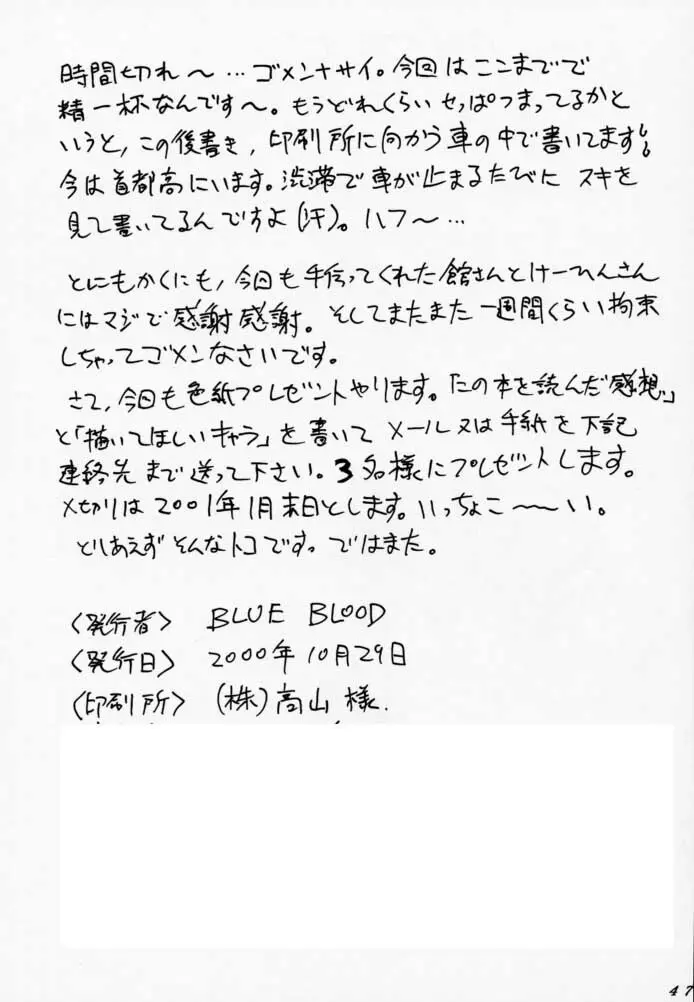 時間切れ〜…ゴメンナサイ。今回はここまでで
精一杯なんです〜。もうどれくらいセッぱつまってるかと
いうと、この後書き、印刷所に向かう車の中で書いてます!。
今は首都高にいます。渋滞で車が止まるたびに スキを
見て書いてるんですよ(汗)。ハフ〜…
とにもかくにも、今回も手伝ってくれた館さんとけーひんさん
にはマジで感謝感謝。そしてまたまた一週間くらい拘束
しちゃってゴメンなさいです。
さて、今回も色紙プレゼントやります。「この本を読んだ感想」
と「描いてほしいキャラ」を書いて メール又は手紙を下記
連絡先まで送って下さい。3名様にプレゼントします。
〆切りは2001年1月末日とします。いっちょこ〜〜い。
とりあえずそんなトコですっ ではまた。
〈発行者〉 BLUE BLOOD
〈発行日〉 2000年10月29日
〈印刷所〉 (株)高山様.
47